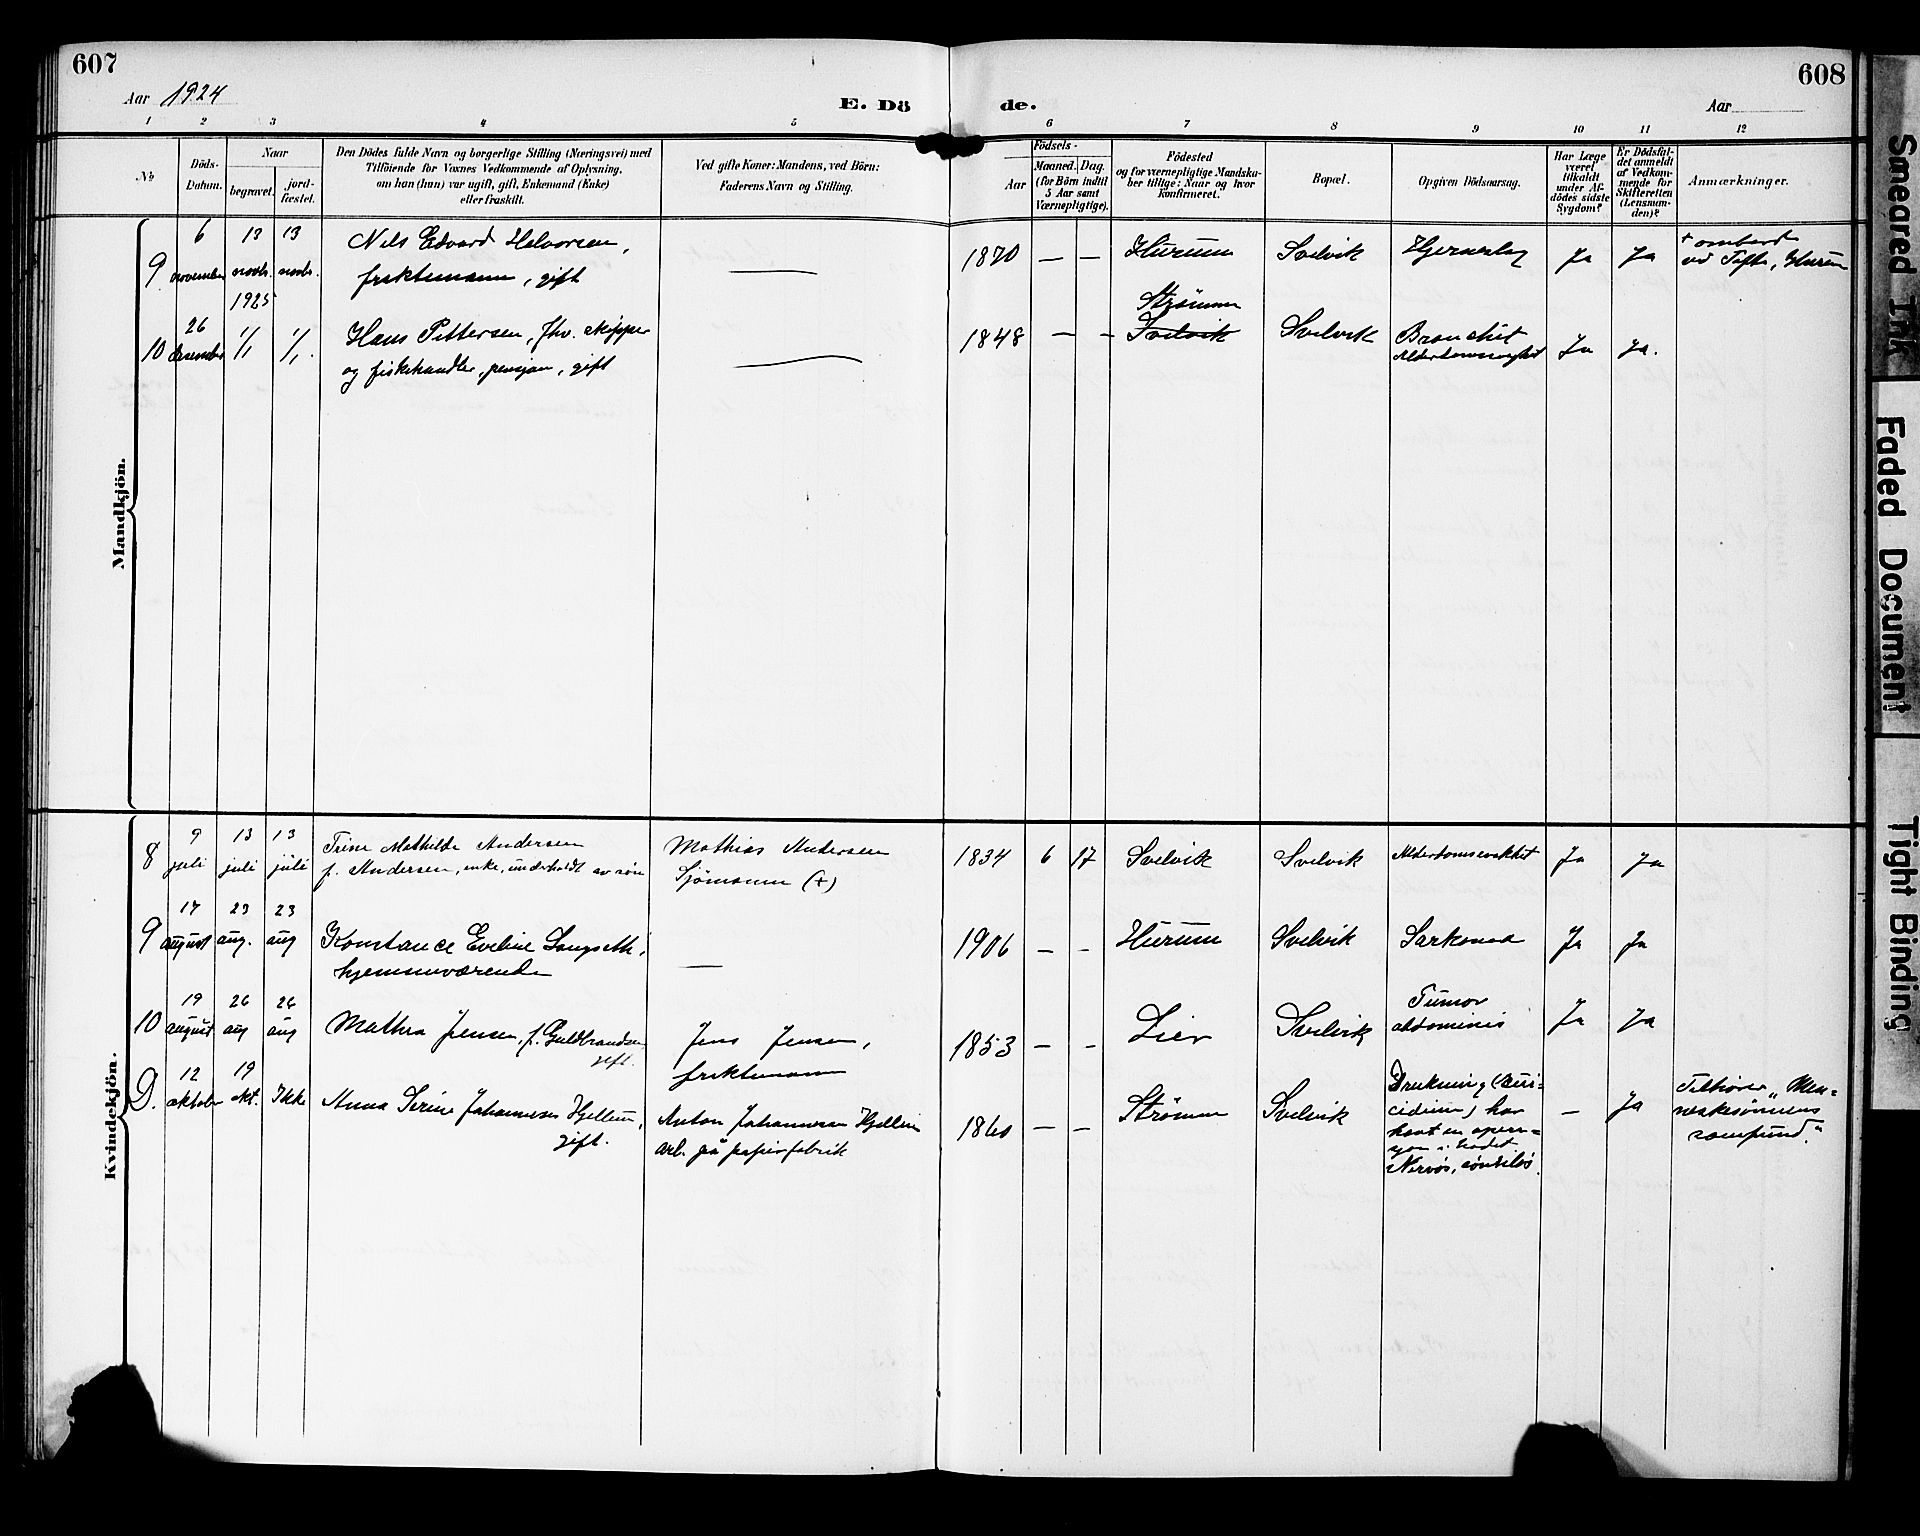 607
608
Aar 1924
E. Dö de.
Aar
1 2 3 4 5 6 7 8 9 10 11 12
No
Döds-
Datum.
Naar
begravet.
jord-
fæstet.
Den Dödes fulde Navn og borgerlige Stilling (Næringsvei) med
Tilföiende for Voxnes Vedkommende af Oplysning,
om han (hun) var ugift, gift, Enkemand (Enke)
eller fraskilt.
Ved gifte Koner: Mandens, ved Börn:
Faderens Navn og Stilling.
Födsels-
Aar
Maaned. Dag.
(for Börn indtil
5 Aar samt
Værnepligtige).
Födested
og for værnepligtige Mandska-
ber tillige: Naar og hvor
konfirmeret.
Bopæl.
Opgiven Dödsaarsag.
Har Læge
været
tilkaldt
under Af-
dödes sidste
Sygdom?
Er Dödsfal-
det anmeldt
af Vedkom-
mende for
Skifteretten
(Lensman-
den)?
Anmærkninger.
Mandkjön.
9
6
november
13
novbr.
13
novbr.
Nils Edvard Halvorsen,
fraktemann, gift
—
1870 — —
Hurum
Svelvik
Hjerneslag
Ja
Ja
+ ombord
ved Tofte, Hurum
10
26
desember
1925
1/1
1/1.
Hans Pettersen, fhv. skipper
og fiskehandler, pensjon, gift
—
1848 — —
Strømm
Svelvik
Svelvik
Bronchit
Alderdomssvaghet
Ja
Ja.
Kvindekjön.
8
9
juli
13
juli
13
juli
Trine Mathilde Andersen
f. Andersen, enke, underholdt av søn
Mathias Andersen
Sjømann (+)
1834 6 17
Svelvik
Svelvik
Alderdomssvakhet
Ja
Ja
9
17
august
23
aug.
23
aug
Konstance Eveline Langseth,
hjemmeværende
—
1906 — —
Hurum
Svelvik
Sarkomed
Ja
Ja
10
19
august
26
aug
26
aug
Mathea Jensen, f. Guldbrandsen
gift.
Jens Jensen,
fraktemann
1853 — —
Lier
Svelvik
Tumor
abdominis
Ja
Ja
D.
12
oktober
19
okt.
Ikke
Anna Serine Johannesen Hjellum,
gift.
Anton Johannesen Hjellum
arb. på papirfabrik
1860 — —
Strømm
Svelvik
Drukning (sui-
cidium) har
havt en opera-
sjon i hodet
Nervøs, søvnløs.
—
Ja
Tilhører "Men-
neskesønnens
samfund."
Smeared Ink
Faded Document
Tight Binding